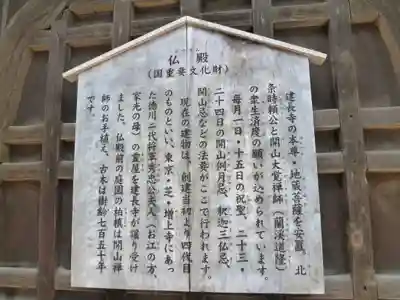 仏殿
（国重要文化財）
建長寺の本尊・地蔵菩薩を安置　北
条時頼公と開山大覚禅師（蘭渓道隆）
の衆生済度の願いが込められています。
毎月一日・十五日の祝聖、二十三・
二十四日の開山例月忌、釈迦三仏忌、
開山忌などの法要がここで行われます。
現在の建物は、創建当初より四代目
のものといい、東京・芝・増上寺にあっ
た徳川二代将軍秀忠公夫人（お江の方、
家光の母）の霊屋を建長寺が譲り受け
ました。仏殿前の庭園の柏槇は開山禅
師のお手植え、古木は樹齢七百五十年
です。